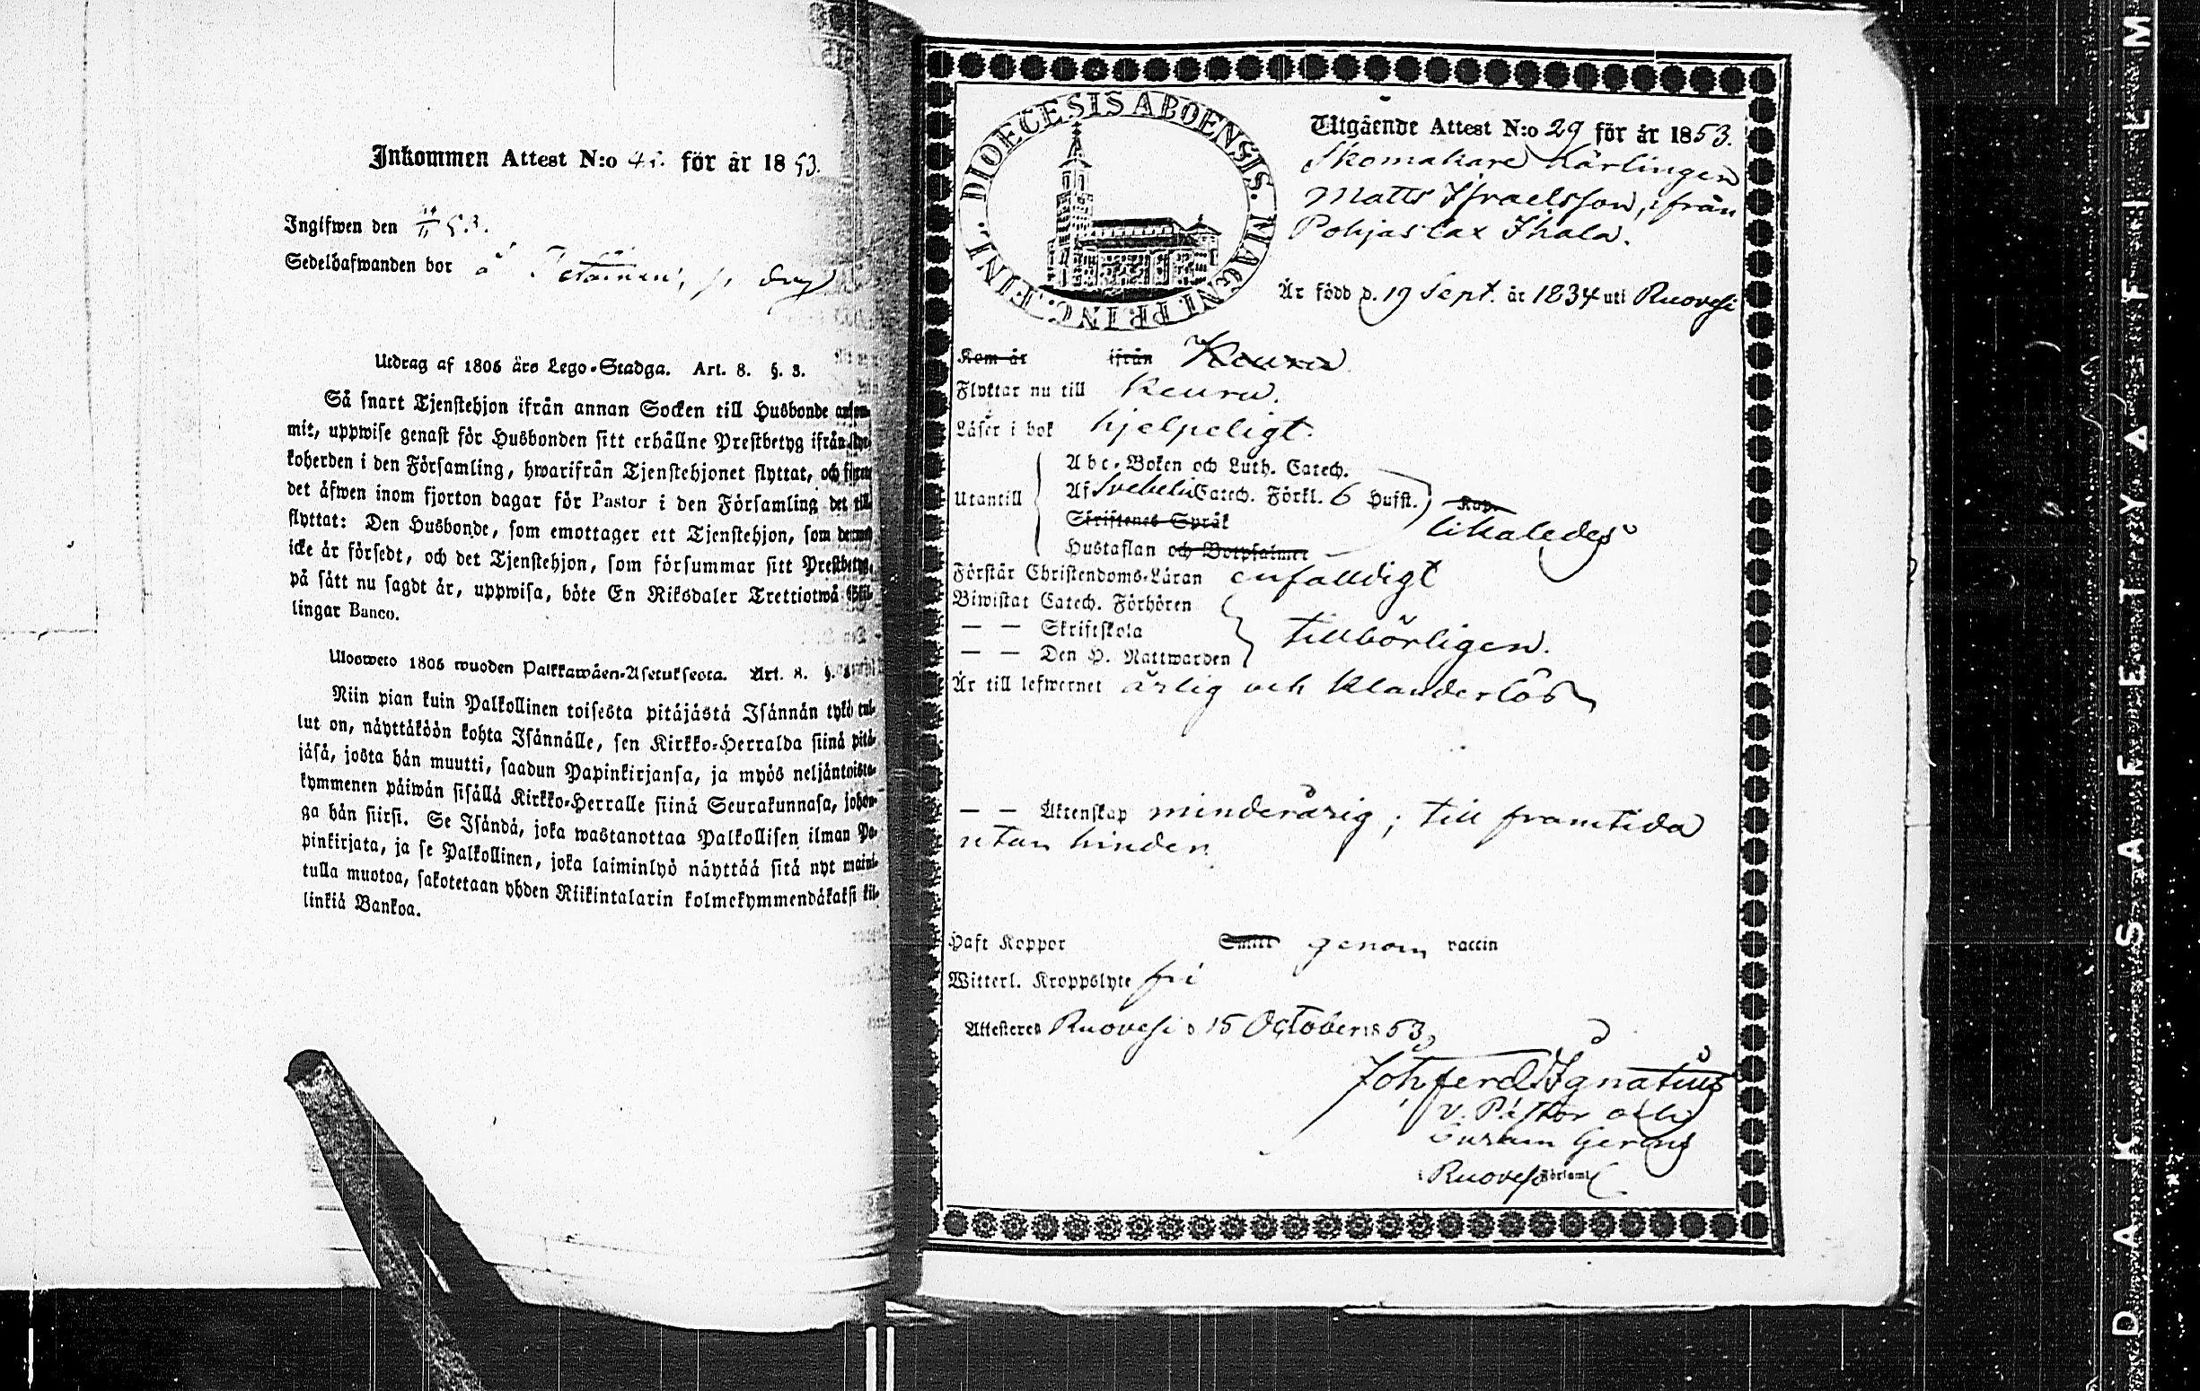 Inkommen Attest N:o för år 1853.
Ingifwen den 53.
Sedelhafwanden bor å
Utdrag af 1805 års Lego-Stadga. Art. 8. §. 3.
Så snart Tjenstehjon ifrån annan Socken till Husbonde ankom-
mit, uppwise genast för Husbonden sitt erhållne Prestbetyg ifrån Kyr-
koherden i den Församling, hwarifrån Tjenstehjonet flyttat, och
det åfwen inom fjorton dagar för Pastor i den Församling det till
flyttat: Den Husbonde, som emottager ett Tjenstehjon, som dermed
icke år försedt, och det Tjenstehjon, som försummar sitt Prestbetyg,
på sått nu sagdt år, uppwisa, böte En Riksdaler Trettiotwå Skil-
lingar Banco.
Ulosweto 1805 wuoden Palkkawåen-Asetuksesta. Art. 8. §.
Niin pian kuin Palkollinen toisesta pitåjåstå Isånnån tykö tul-
lut on, nåyttåköön kohta Isånnålle, sen Kirkko-Herralda siinå pitå-
jåså, josta hån muutti, saadun Papinkirjansa, ja myös neljåntoista-
kymmenen påiwån sisållå Kirkko-Herralle siinå Seurakunnasa, johon-
ga hån siirsi. Se Isåndå, joka wastanottaa Palkollisen ilman Pa-
pinkirjata, ja se Palkollinen, joka laiminlyö nåyttåå sitå nyt maini-
tulla muotoa, sakotetaan yhden Riikintalarin kolmekymmendåkaksi kil-
linkiå Bankoa.
DIOECESIS ABOENSIS. MAGNI PRINC. FINL.
Utgående Attest N:o 29 för år 1853.
Skomakare Lärlingen
Matts Israelsson, ifrån
Pohjaslax Ihala.
År född d. 19 Sept. år 1834 uti Ruovesi
Kom år ifrån Keuru
Flyttar nu till Keuru.
Låser i bok hjelpeligt.
Utantill
Abc-Boken och Luth. Catech.
Af Svebelii Catech. Förkl. 6 Hufst.
Skriftenes Språk
likaledes
Hustaflan och Botpsalmer
Förstår Christendoms-Låran enfaldigt
Biwistat Catech. Förhören
— — Skriftskola
tillbörligen.
— — Den H. Nattwarden
År till lefwernet ärlig och klanderlös
— — Åktenskap minderårig; till framtida
utan hinder
Haft Koppor Smitt genom vaccin
Witterl. Kroppslyte fri
Attesteres Ruovesi d 15 October 1853,
Joh ferd Ignatius
v. Pastor och
Curam Gerens
i Ruovesi Församl
DAK SAFETY A FILM